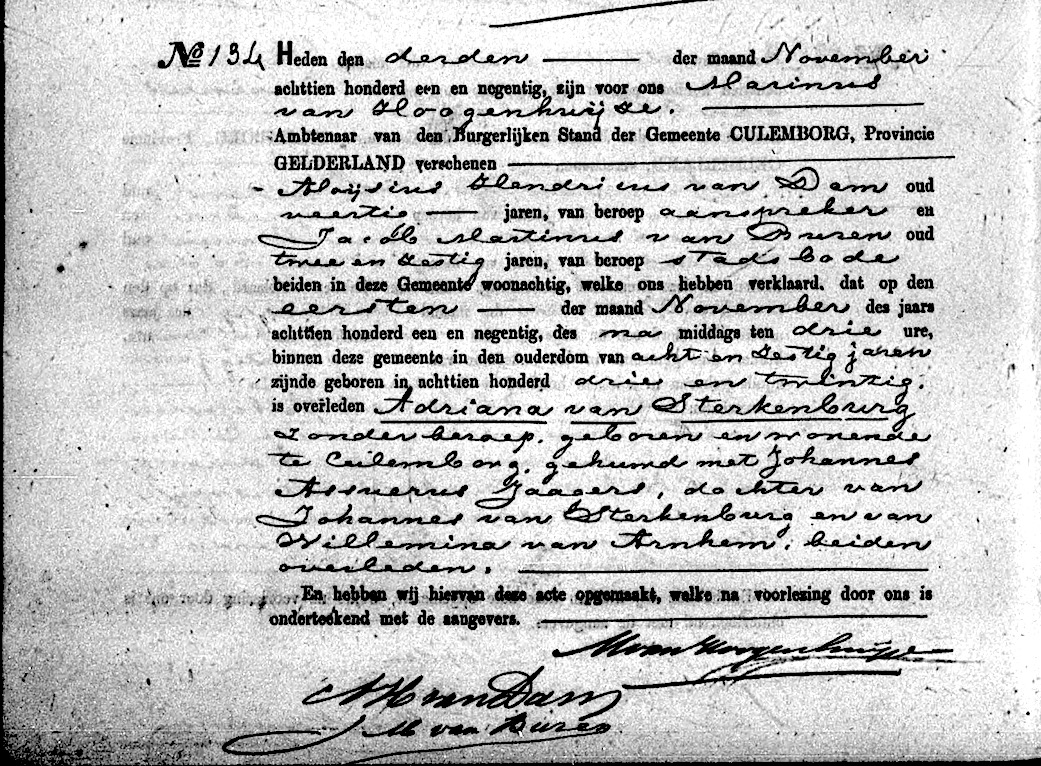 No 134 Heden den derden der maand November
achttien honderd een en negentig, zijn voor ons Marinus
van Hoogenhuijze.
Ambtenaar van den Burgerlijken Stand der Gemeente CULEMBORG, Provincie
GELDERLAND verschenen
Aloysius Hendricus van Dam oud
veertig jaren, van beroep aanspreker en
Jacob Martinus van Buren oud
twee en zestig jaren, van beroep stadsbode
beiden in deze Gemeente woonachtig, welke ons hebben verklaard, dat op den
eersten der maand November des jaars
achttien honderd een en negentig, des na middags ten drie ure,
binnen deze gemeente in den ouderdom van acht en zestig jaren
zijnde geboren in achttien honderd drie en twintig.
is overleden Adriana van Sterkenburg
zonder beroep, geboren en wonende
te Culemborg, gehuwd met Johannes
Assuerus Jaagers, dochter van
Johannes van Sterkenburg en van
Willemina van Arnhem, beiden
overleden.
En hebben wij hiervan deze acte opgemaakt, welke na voorlezing door ons is
onderteekend met de aangevers.
M van Hoogenhuijze
A H van Dam
J M van Buren